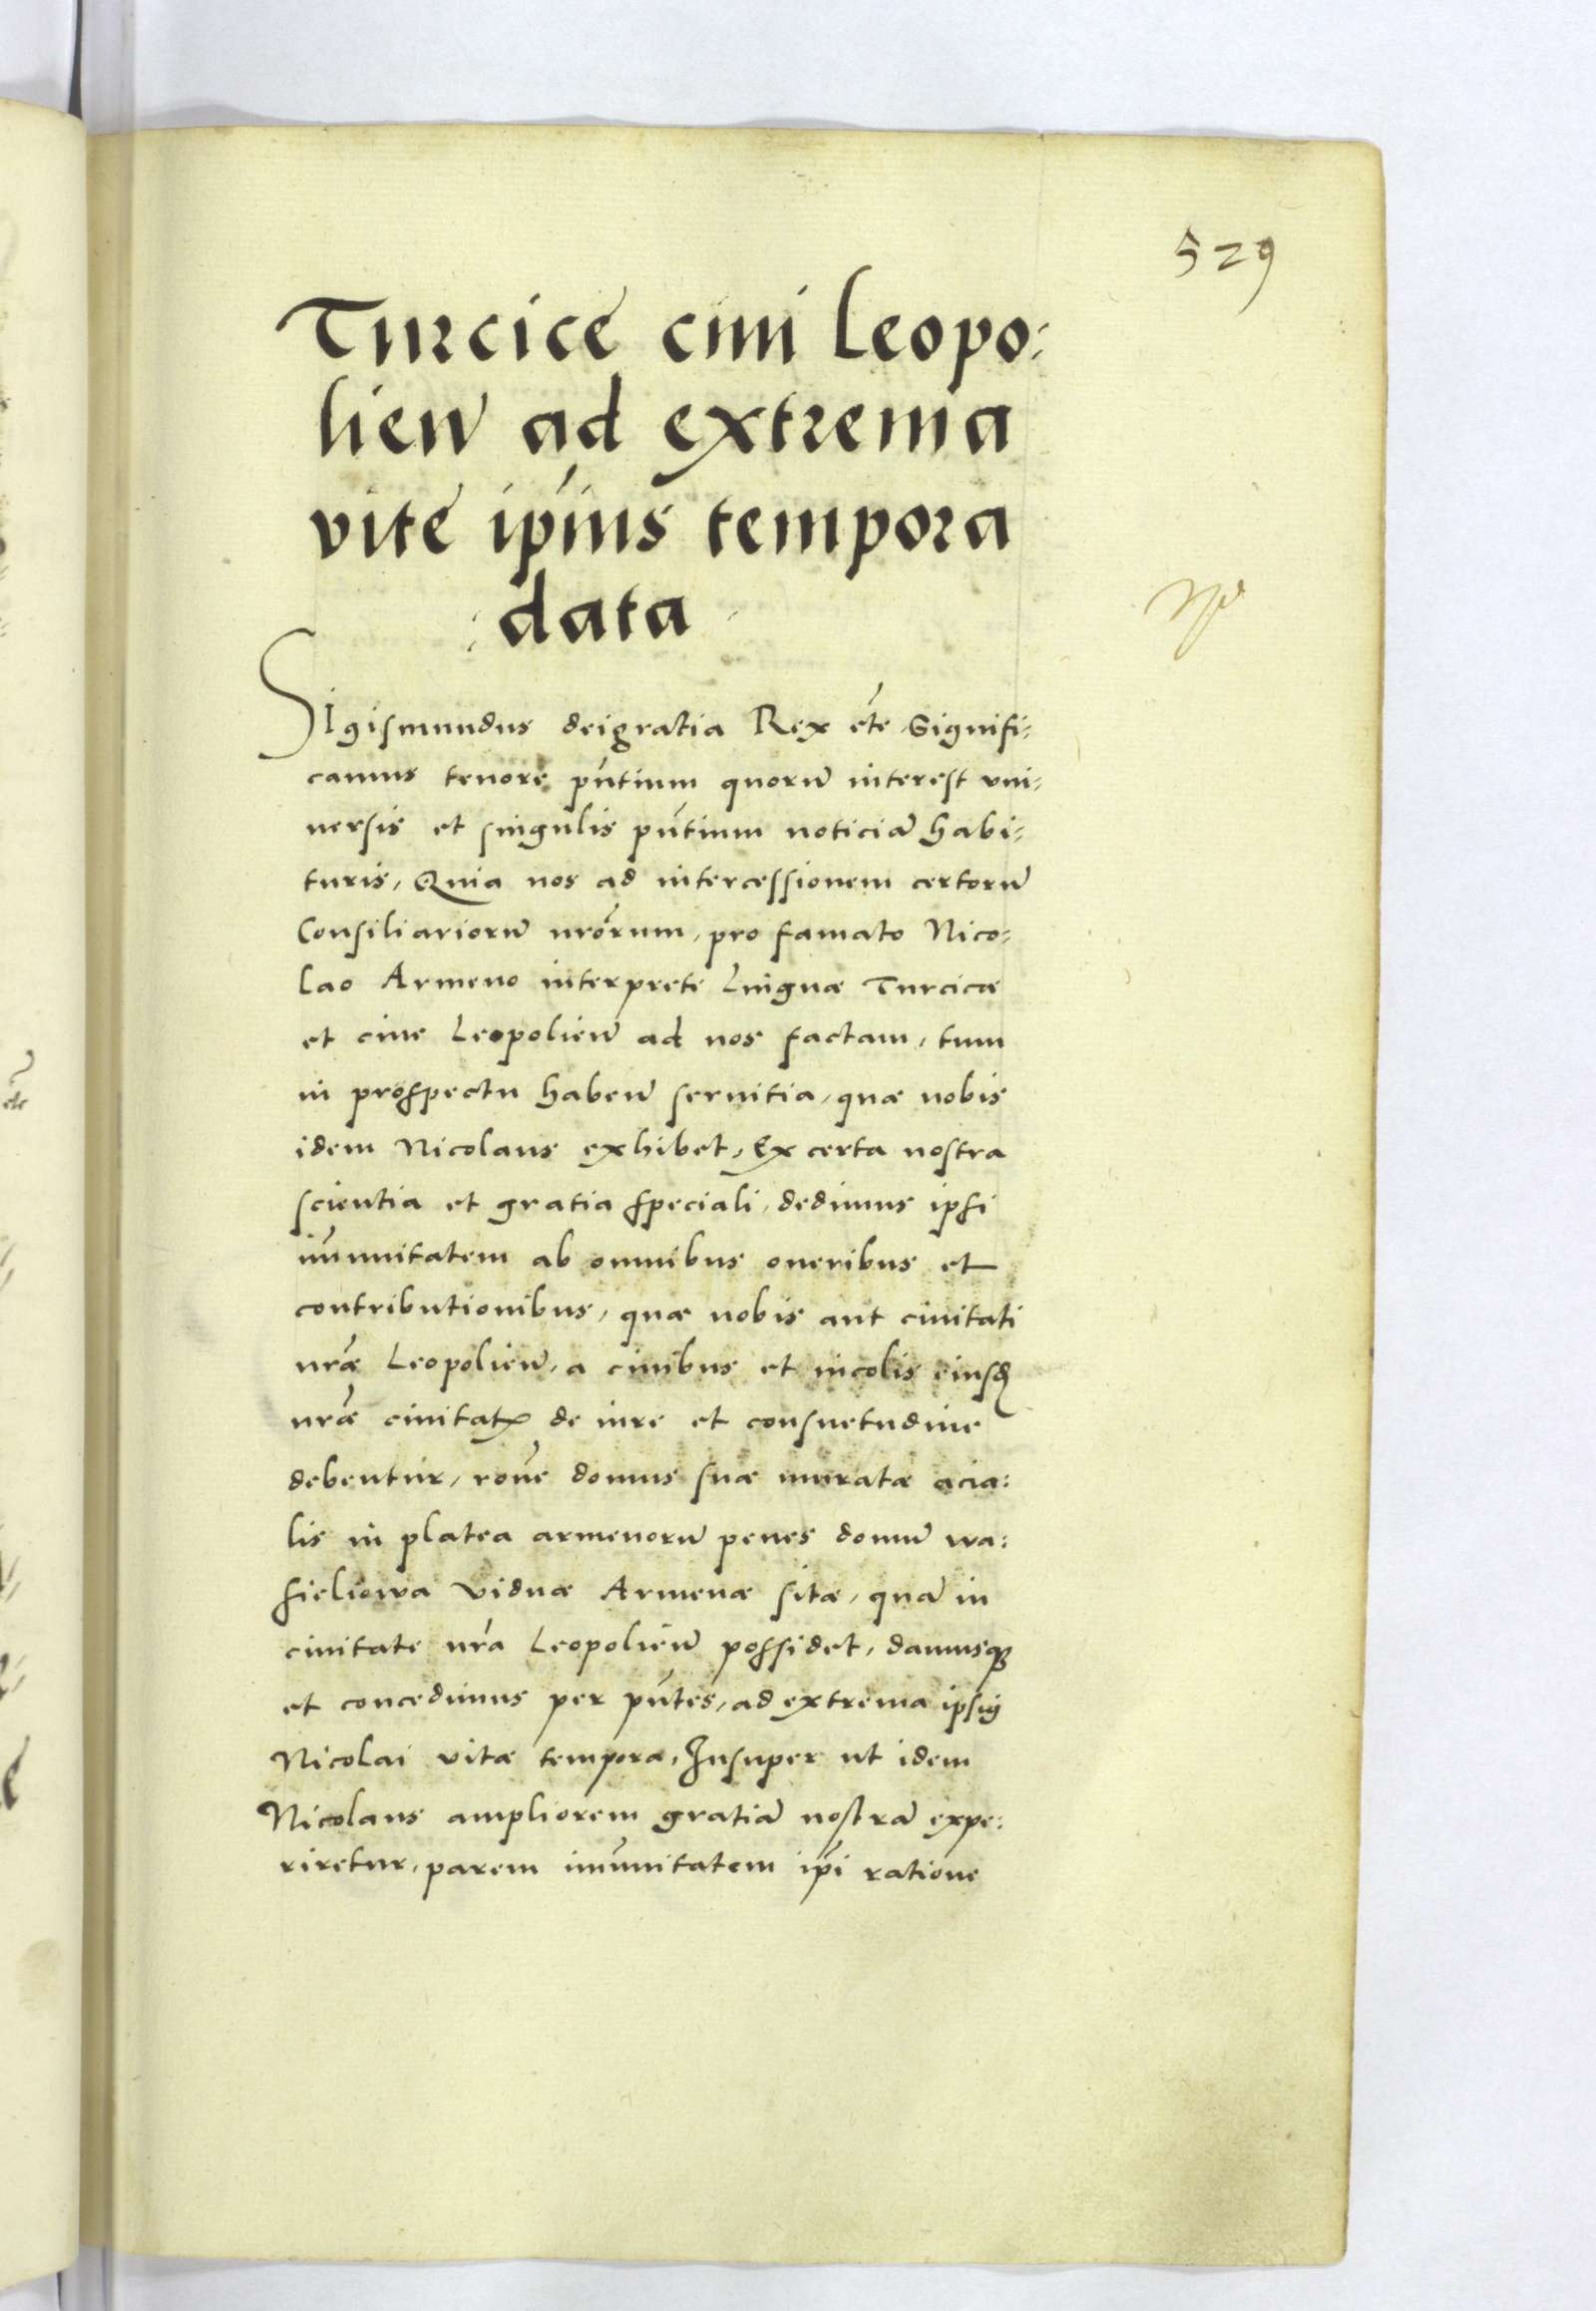 529
Turcice civi Leopo:
lień ad extrema
vite ip̃ius tempora
data
SIgismundus deigratia Rex etć Signifi:
camus tenore pñtium quorũ interest vni:
uersis et singulis pñtium noticiã habi:
turis, Quia nos ad intercessionem certorũ
Consiliariorũ nrõrum, pro famato Nico:
lao Armeno interprete Linguæ Turcicæ
et ciue Leopolień ad nos factam, tum
in prospectu habeń seruitia, quæ nobis
idem Nicolaus exhibet, Ex certa nostra
scientia et gratia speciali, dedimus ipsi
im̃unitatem ab omnibus oneribus et
contributionibus, quæ nobis aut ciuitati
nræ̃ Leopolień, a ciuibus et incolis eiusdꝫ
nræ̃ ciuitatꝭ de iure et consuetudine
debentur, roñe domus suæ muratæ acia:
lis in platea armenorũ penes domũ wa:
sieliowa viduæ Armenæ sitæ, quã in
ciuitate nrã Leopolień possidet, damusqꝫ
et concedimus per pñtes, ad extrema ipsiꝰ
Nicolai vitæ tempora, Insuper ut idem
Nicolaus ampliorem gratiã nostrã expe:
riretur, parem im̃unitatem ip̃i ratione